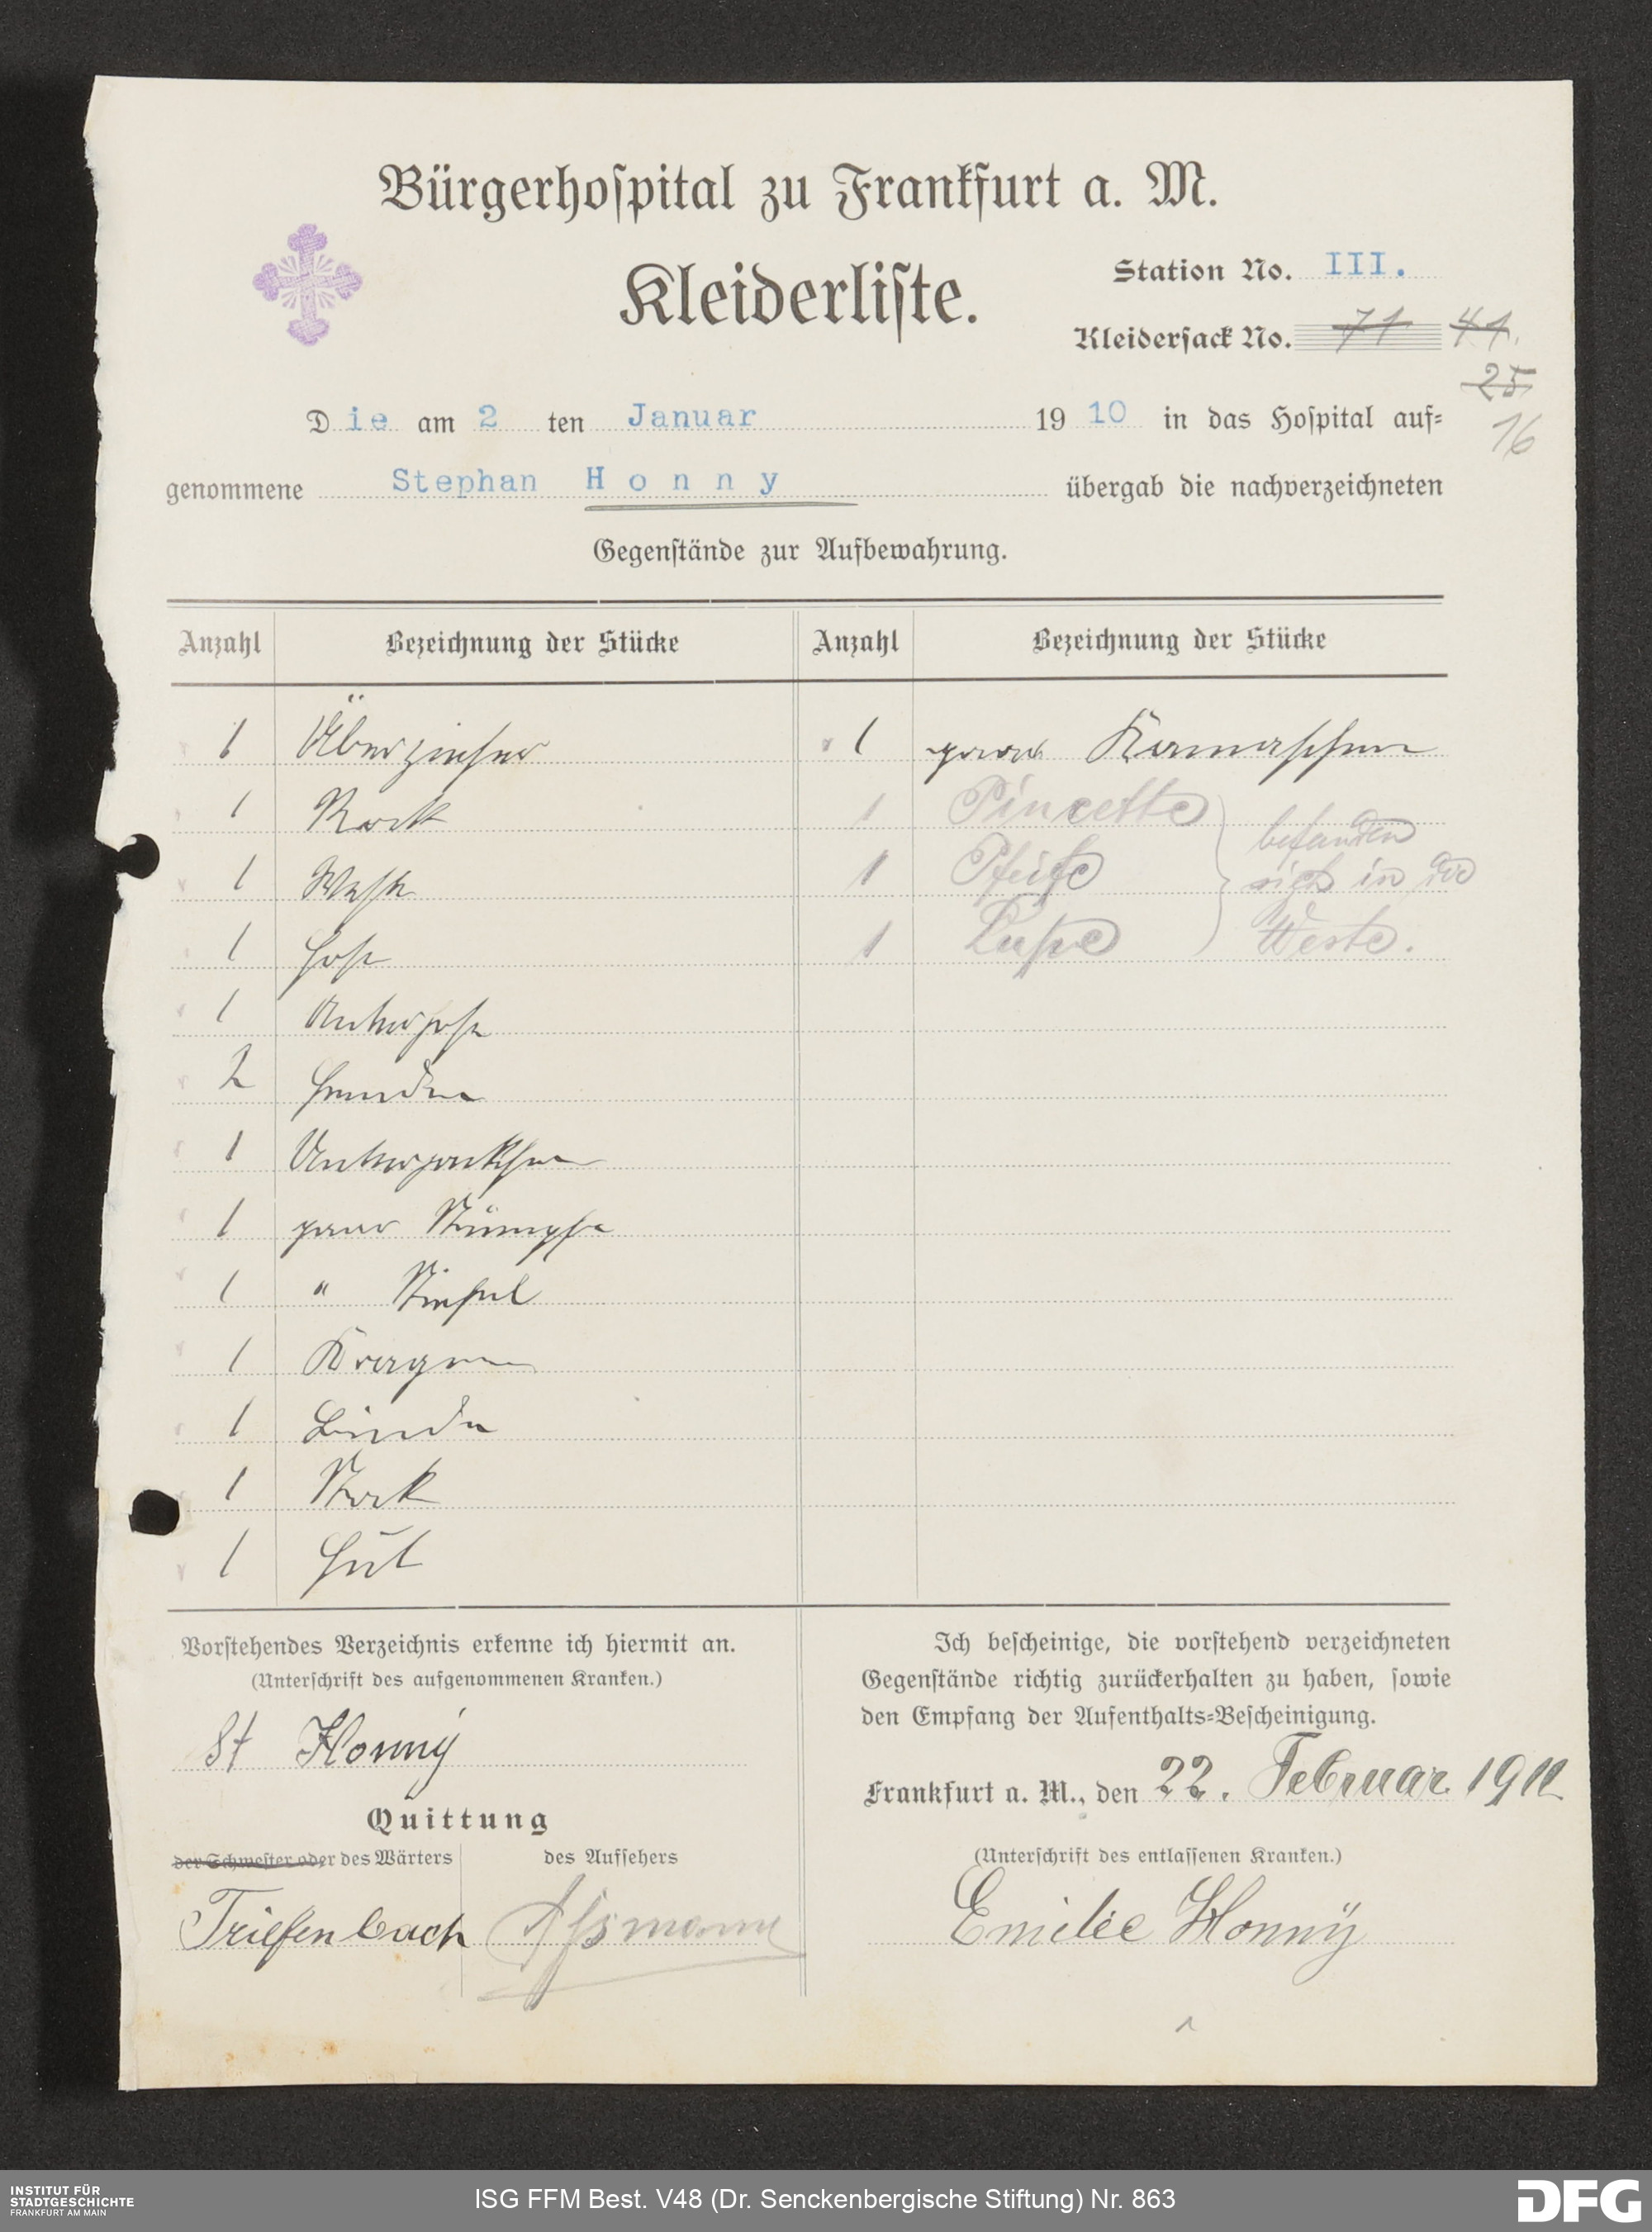 Bürgerhoſpital zu Frankfurt a. M.
Kleiderliſte.
Station No. III.
Kleiderſack No. 71 41.
25
16
Die am 2 ten Januar 1910 in das Hoſpital auf=
genommene Stephan Honny übergab die nachverzeichneten
Gegenſtände zur Aufbewahrung.
Anzahl Bezeichnung der Stücke Anzahl Bezeichnung der Stücke
1 Überzieher 1 paar Kamaschen
1 Rock 1 Pincette
1 Weste 1 Pfeife
1 Hose 1 Lupe
befanden
sich in der
Weste.
1 Unterhose
2 Hemden
1 Unterjackchen
1 paar Strümpfe
1 " Stiefel
1 Kragen
1 Binde
1 Stock
1 Hut
Vorſtehendes Verzeichnis erkenne ich hiermit an.
(Unterſchrift des aufgenommenen Kranken.)
St Honny
Quittung
der Schweſter oder des Wärters des Aufſehers
Triefenbach Assmann
Ich beſcheinige, die vorſtehend verzeichneten
Gegenſtände richtig zurückerhalten zu haben, ſowie
den Empfang der Aufenthalts=Beſcheinigung.
Frankfurt a. M., den 22. Februar
(Unterſchrift des entlaſſenen Kranken.)
Emilie Honny
INSTITUT FÜR
STADTGESCHICHTE
FRANKFURT AM MAIN
ISG FFM Best. V48 (Dr. Senckenbergische Stiftung) Nr. 863
DFG